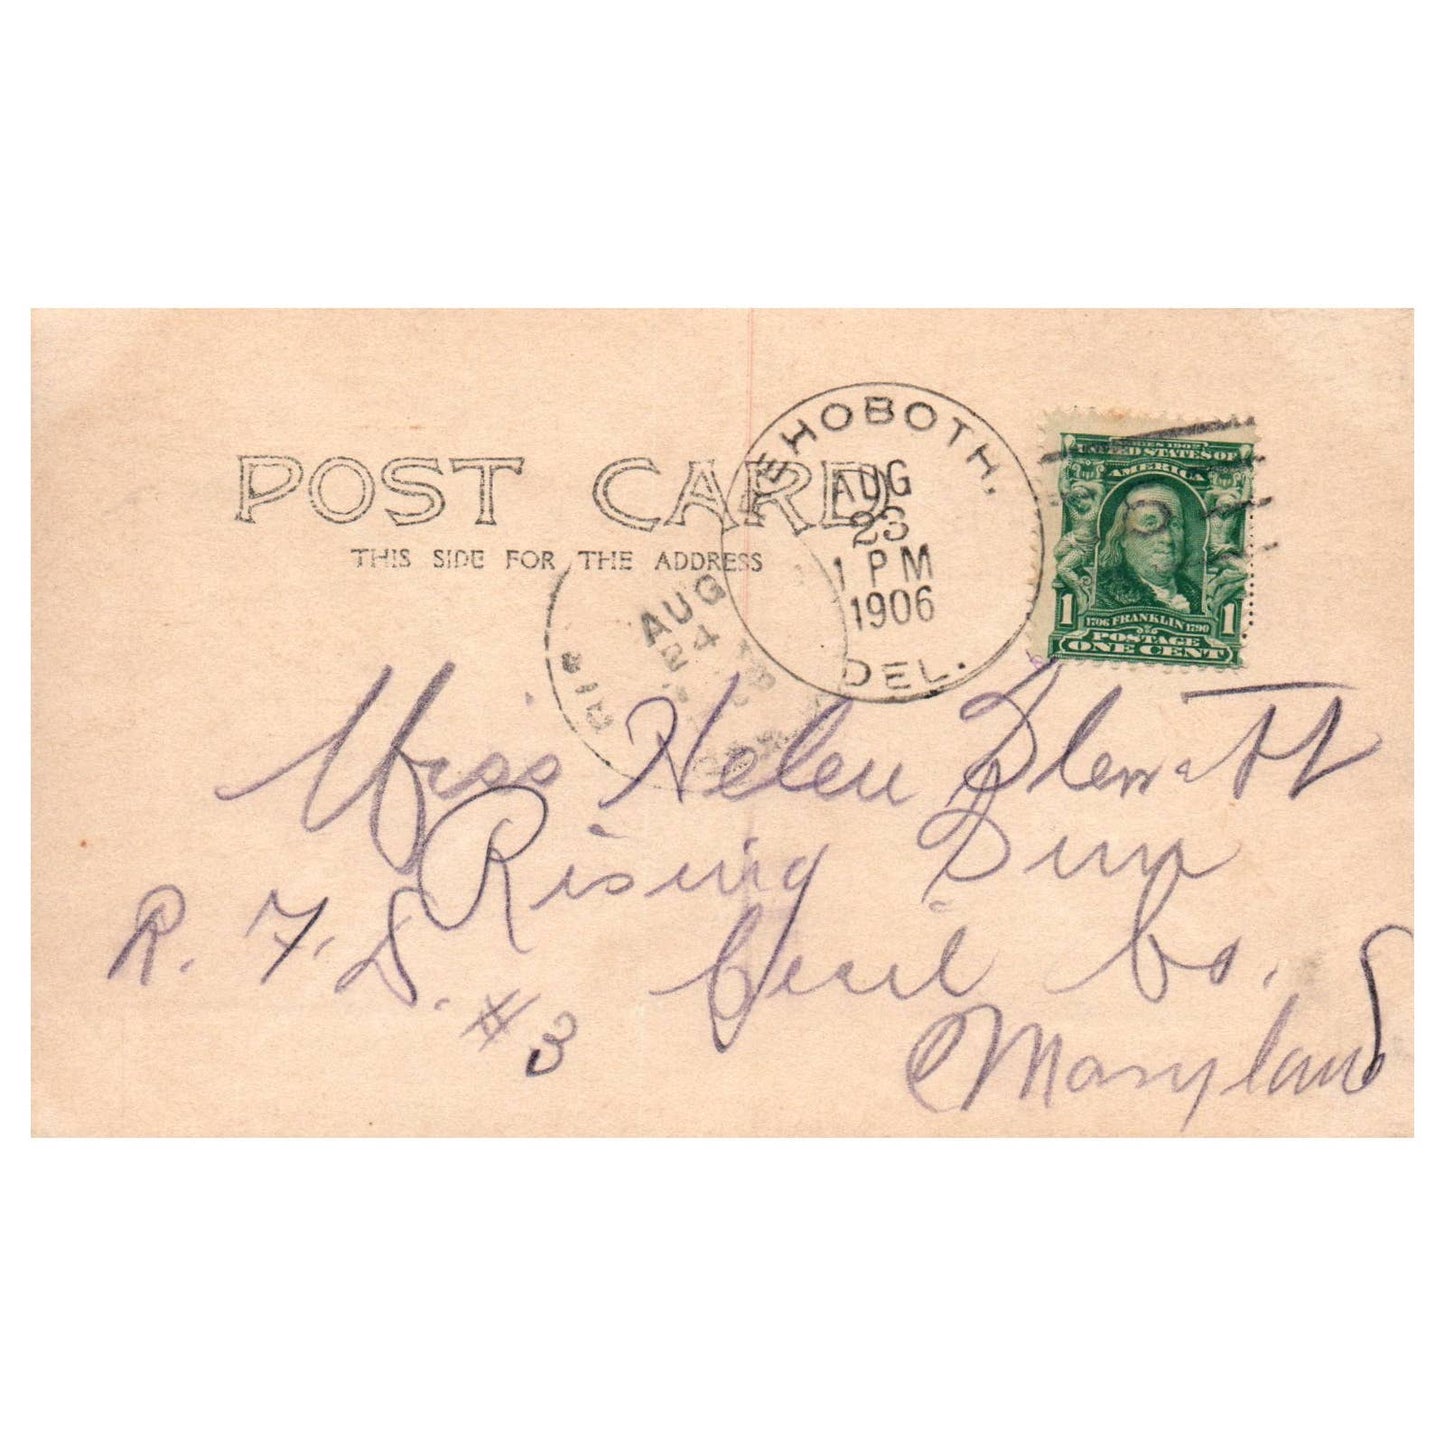 POST CARD
THIS SIDE FOR THE ADDRESS
EHOBOTH.
AUG
23
1 PM
1906
DEL.
AUG
24
SERIES 1902
UNITED STATES OF
AMERICA
1 1
1706 FRANKLIN 1790
POSTAGE
ONE CENT
Miss Helen
Rising Sun
R. F. D. #3 Cecil Co.
Maryland